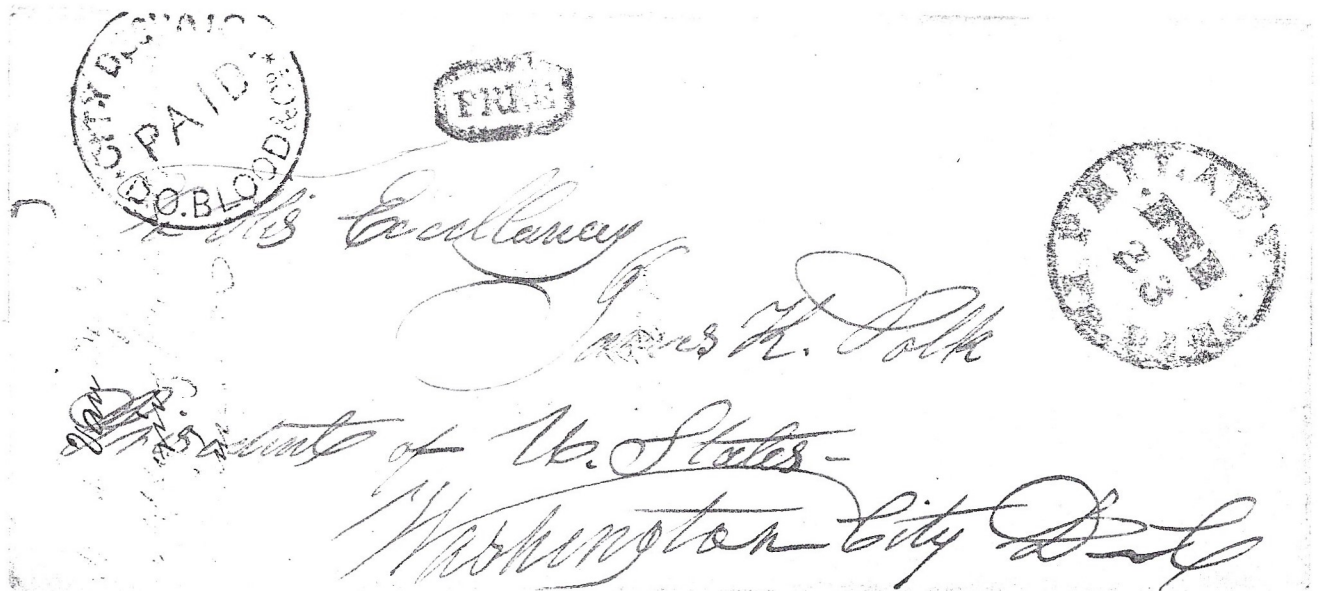 CITY DESPATCH
PAID
D.O. BLOOD & Co.
FREE
To His Excellancy
James K. Polk
President of U. States -
Washington City D C
PHILAD
FEB
23